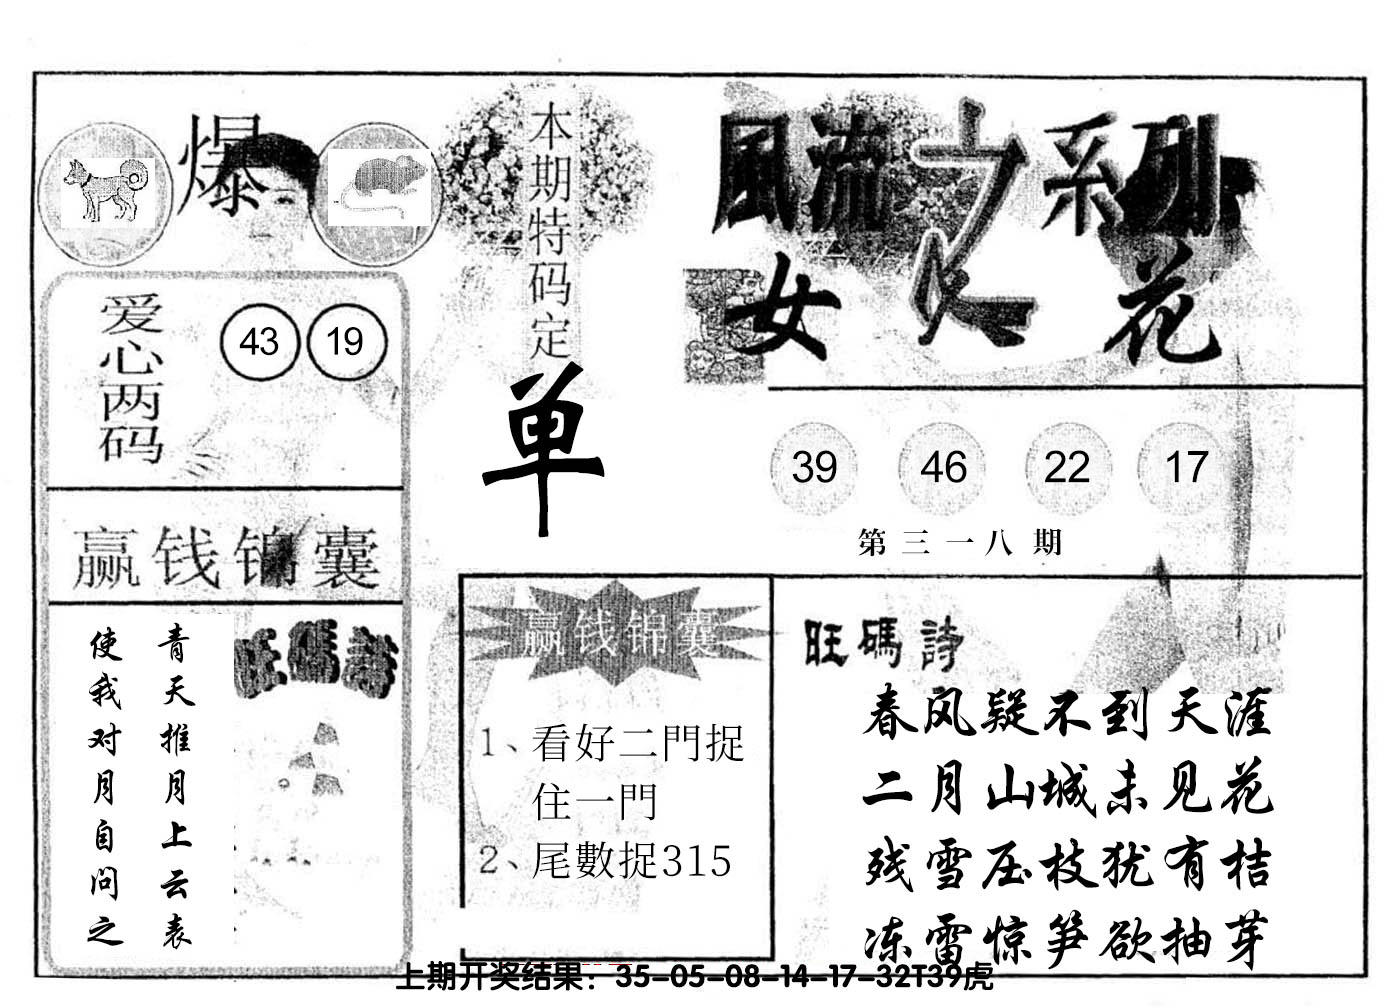 爆
本期特码定
单
風流之系列
女人花
爱心两码
43 19
39 46 22 17
第三一八期
赢钱锦囊
旺碼詩
青天推月上云表
使我对月自问之
赢钱锦囊
1、看好二門捉
住一門
2、尾數捉315
旺碼詩
春风疑不到天涯
二月山城未见花
残雪压枝犹有桔
冻雷惊笋欲抽芽
上期开奖结果：35-05-08-14-17-32T39虎